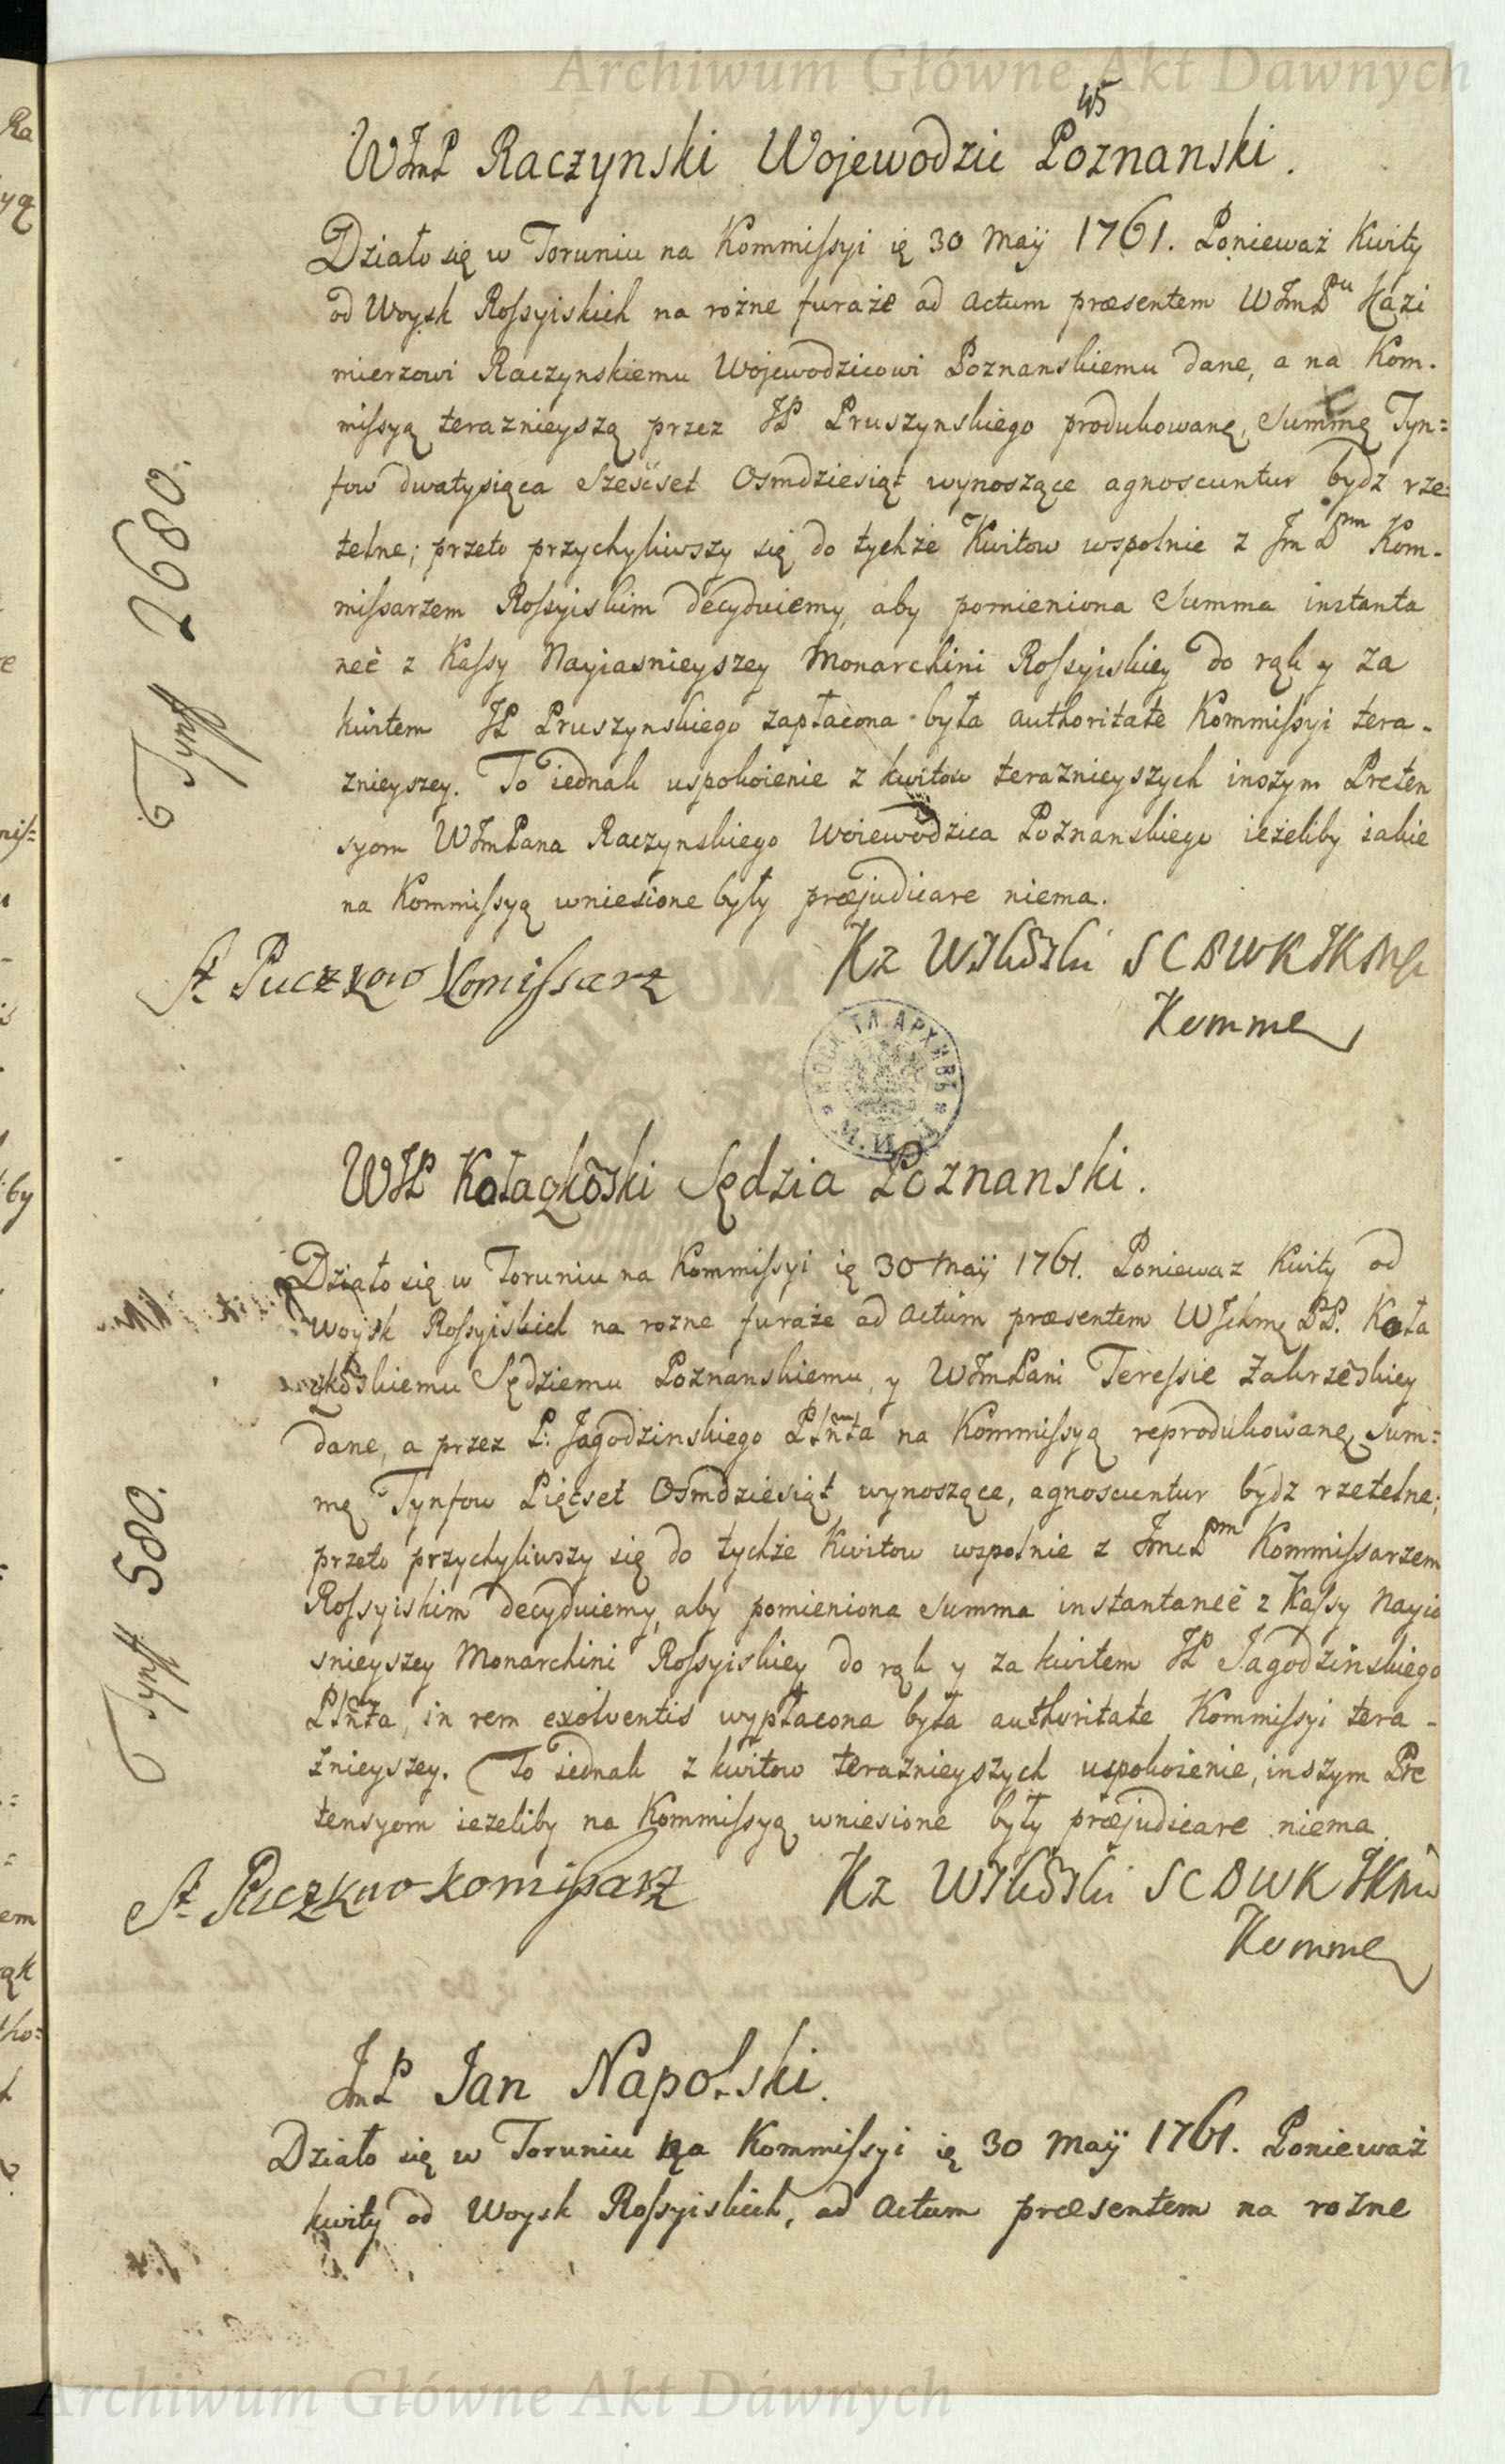 Archiwum Główne Akt Dawnych
45
WJmP Raczynski Wojewodzic Poznanski.
Działo się w Toruniu na Kommissyi ię 30 Maÿ 1761. Ponieważ Kwity
od Woysk Rossyiskich na rożne furaże ad Actum præsentem WJmP<sup>u</sup> Kazi
mierzowi Raczynskiemu Wojewodzicowi Poznanskiemu dane, a na Kom-
missyą teraznieyszą przez JP Pruszynskiego produkowane, Summę Tyn=
fow dwatysiąca Sześćset Osmdziesiąt wynoszące agnoscuntur bydz rze=
telne; przeto przychyliwszy się do tychże Kwitow wspolnie z JmP<sup>m</sup> Kom-
missarzem Rossyiskim decyduiemy, aby pomieniona Summa instanta
neè z Kassy Nayiasnieyszey Monarchini Rossyiskiey do rąk y za
kwitem JP Pruszynskiego zapłacona była authoritate Kommissyi tera-
znieyszey. To iednak uspokoienie z kwitow teraznieyszych inszym Preten
syom WJmPana Raczynskiego Woiewodzica Poznanskiego ieżeliby iakie
na Kommissyą wniesione były præjudicare niema.
6 Tynff 2680.
Kommissarz
Komme
МОСК. ГЛ. АРХИВЪ М.И.Д.
WJP Sędzia Poznanski.
Działo się w Toruniu na Kommissyi ię 30 Maÿ 1761. Ponieważ Kwity od
Woysk Rossyiskich na rozne furaże ad Actum præsentem PP. Koła
Sędziemu Poznanskiemu, y WJmPani Teressie Zakrzeskiey
dane, a przez P: Jagodzinskiego na Kommissyą reprodukowane, Sum=
mę Tynfow Pięćset Osmdziesiąt wynoszące, agnoscuntur bydz rzetelne;
przeto przychyliwszy się do tychże Kwitow wspolnie z JmcP<sup>m</sup> Kommissarzem
Rossyiskim decyduiemy, aby pomieniona Summa instantaneè z Kassy Nayia
snieyszey Monarchini Rossyiskiey do rąk y za kwitem JP Jagodzinskiego
in rem exolventis wypłacona była authoritate Kommissyi tera-
znieyszey. To iednak z kwitow teraznieyszych uspokoienie, inszym Pre
tensyom ieżeliby na Kommissyą wniesione były præjudicare niema.
6 Tynff 580.
Komissarz
Komme
JmP Jan Napolski.
Działo się w Toruniu na Kommissyi ię 30 Maÿ 1761. Ponieważ
kwity od Woysk Rossyiskich, ad Actum præsentem na rozne
Archiwum Główne Akt Dawnych